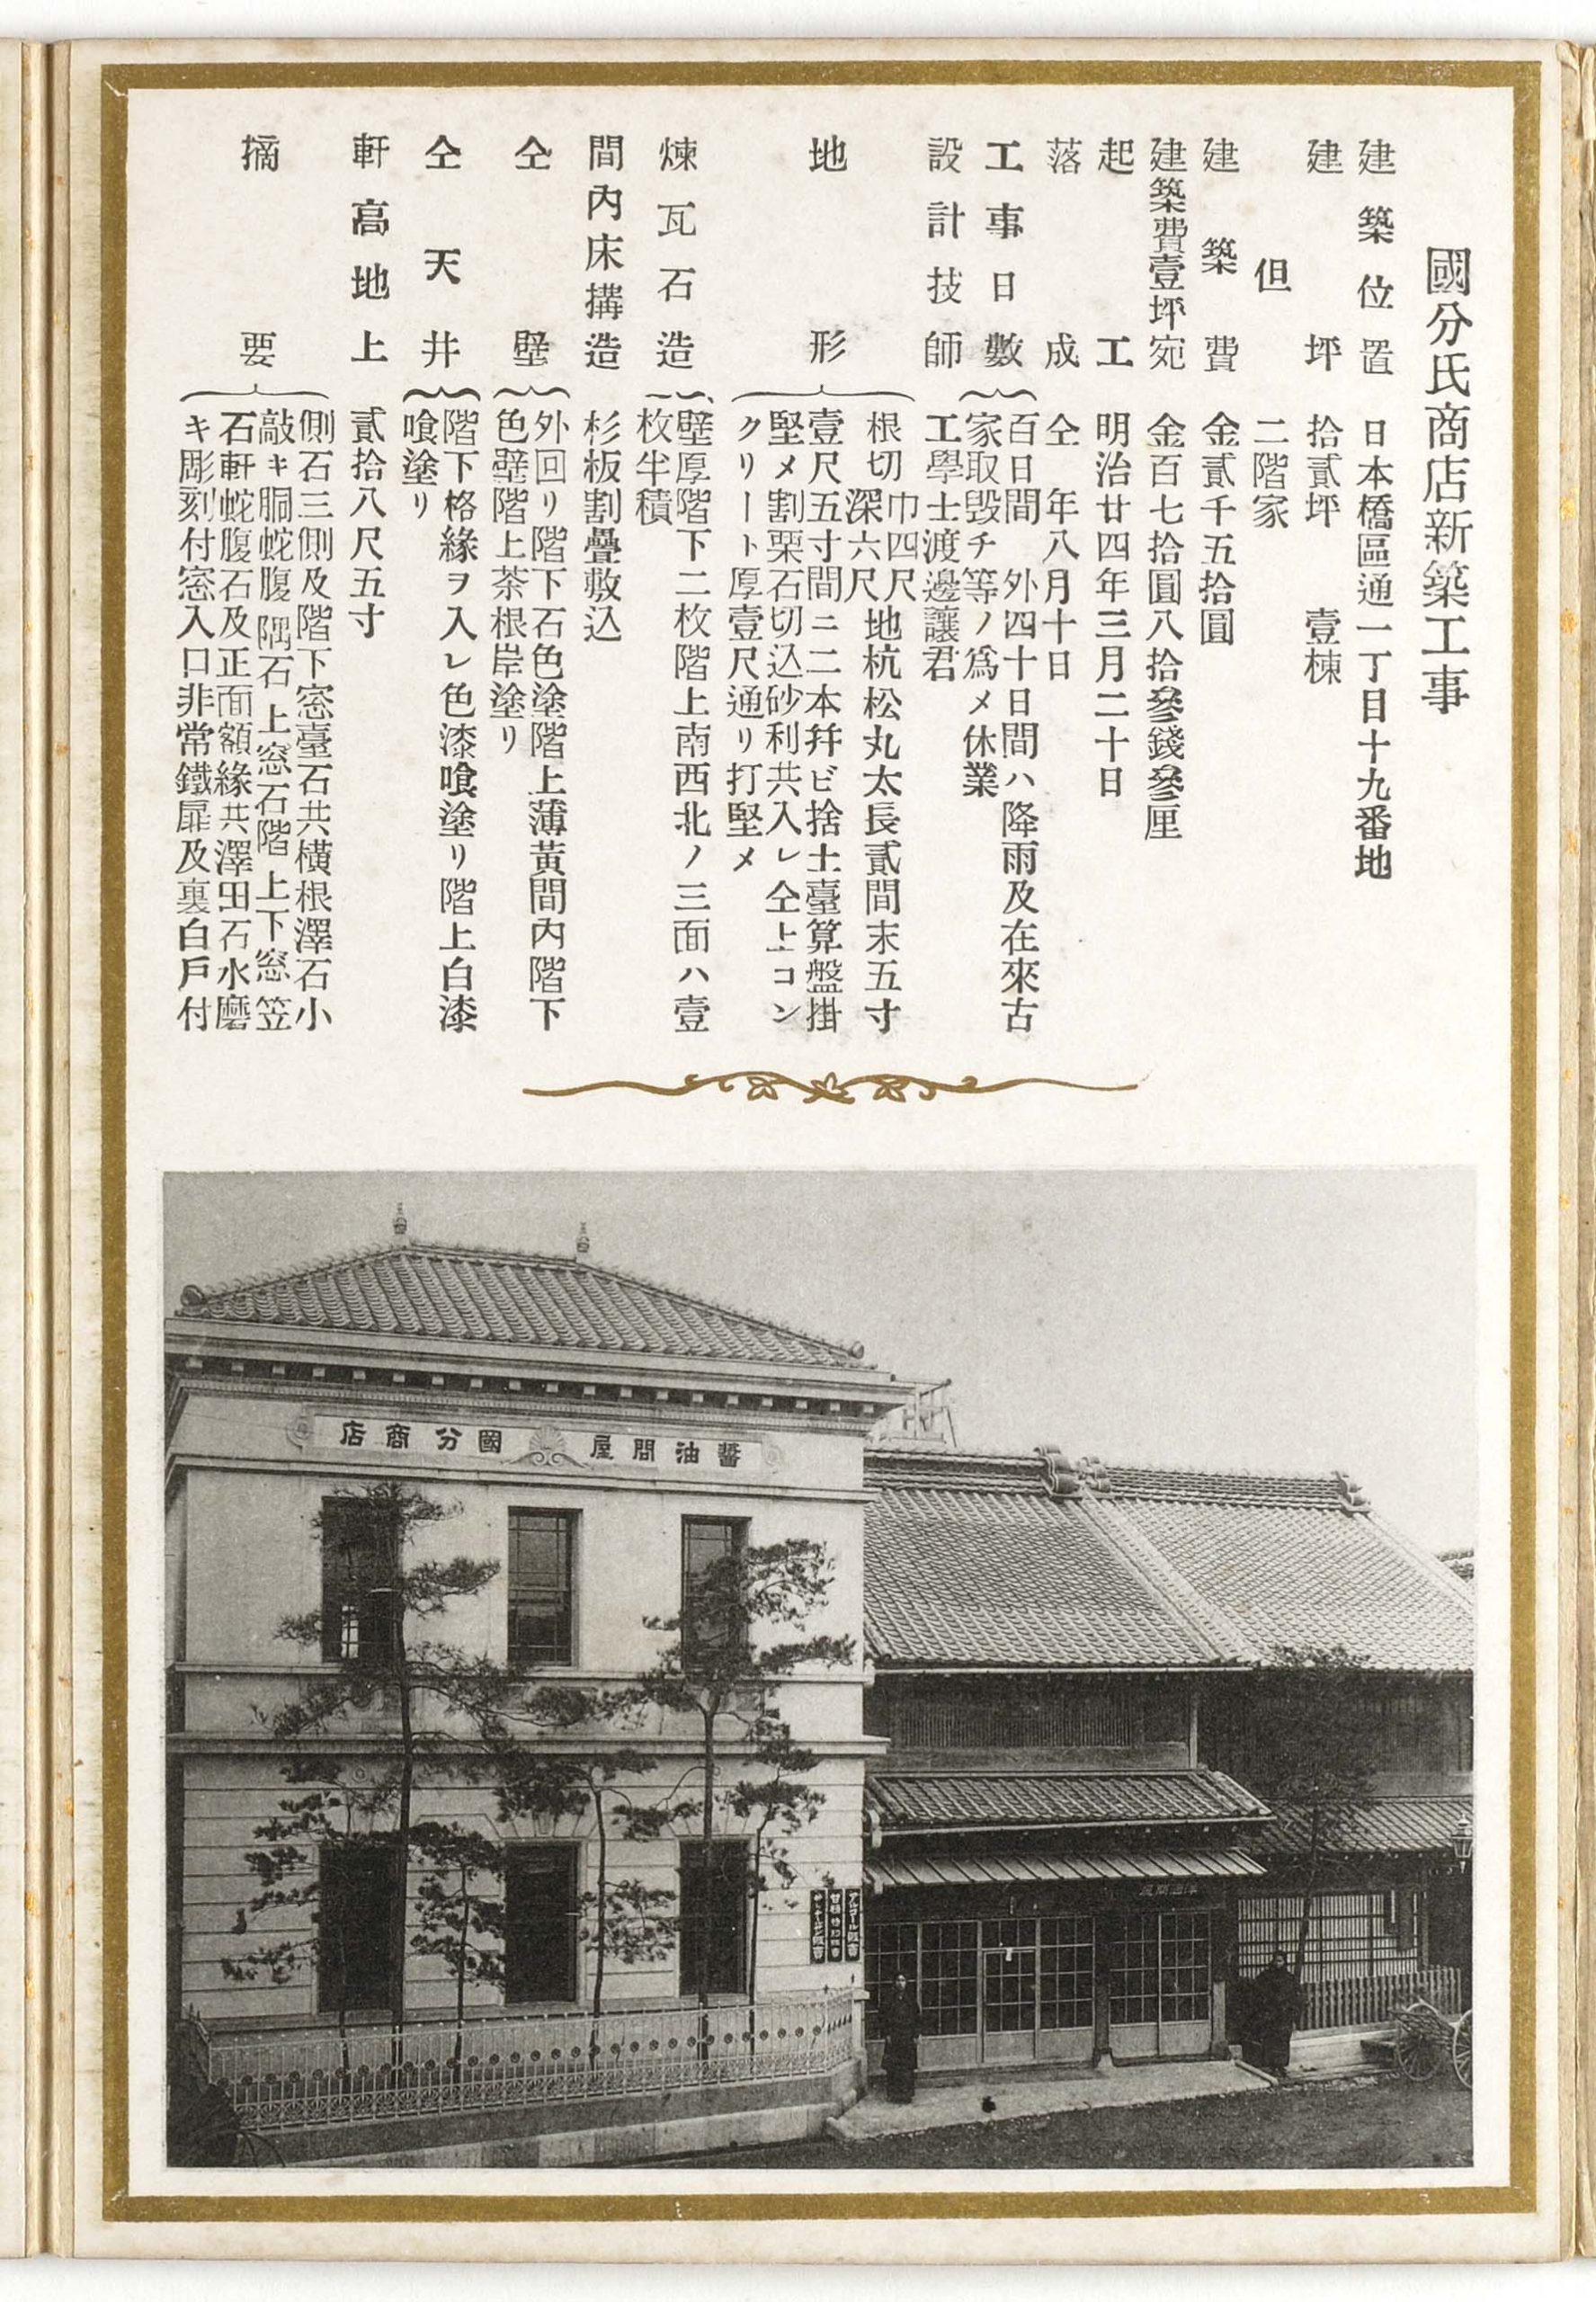 國分氏商店新築工事
建築位置 日本橋區通一丁目十九番地
建坪 拾貳坪 壹棟
但 二階家
建築費 金貳千五拾圓
建築費壹坪宛 金百七拾圓八拾參錢參厘
起工 明治廿四年三月二十日
落成 仝年八月十日
工事日數 百日間 外四十日間ハ降雨及在來古
家取毀チ等ノ爲メ休業
設計技師 工學士渡邊讓君
地形 根切巾四尺深六尺地杭松丸太長貳間末五寸
壹尺五寸間ニ二本幷ビ捨土臺算盤掛
堅メ割栗石切込砂利共入レ仝上コン
クリート厚壹尺通リ打堅メ
煉瓦石造 壁厚階下二枚階上南西北ノ三面ハ壹
枚半積
間內床搆造 杉板割疊敷込
仝壁 外回リ階下石色塗階上薄黃間內階下
色壁階上茶根岸塗リ
仝天井 階下格緣ヲ入レ色漆喰塗リ階上白漆
喰塗リ
軒高地上 貳拾八尺五寸
摘要 側石三側及階下窓臺石共橫根澤石小
敲キ胴蛇腹隅石上窓石階上下窓笠
石軒蛇腹石及正面額緣共澤田石水磨
キ彫刻付窓入口非常鐵扉及裏白戶付
店商分國 屋問油醬